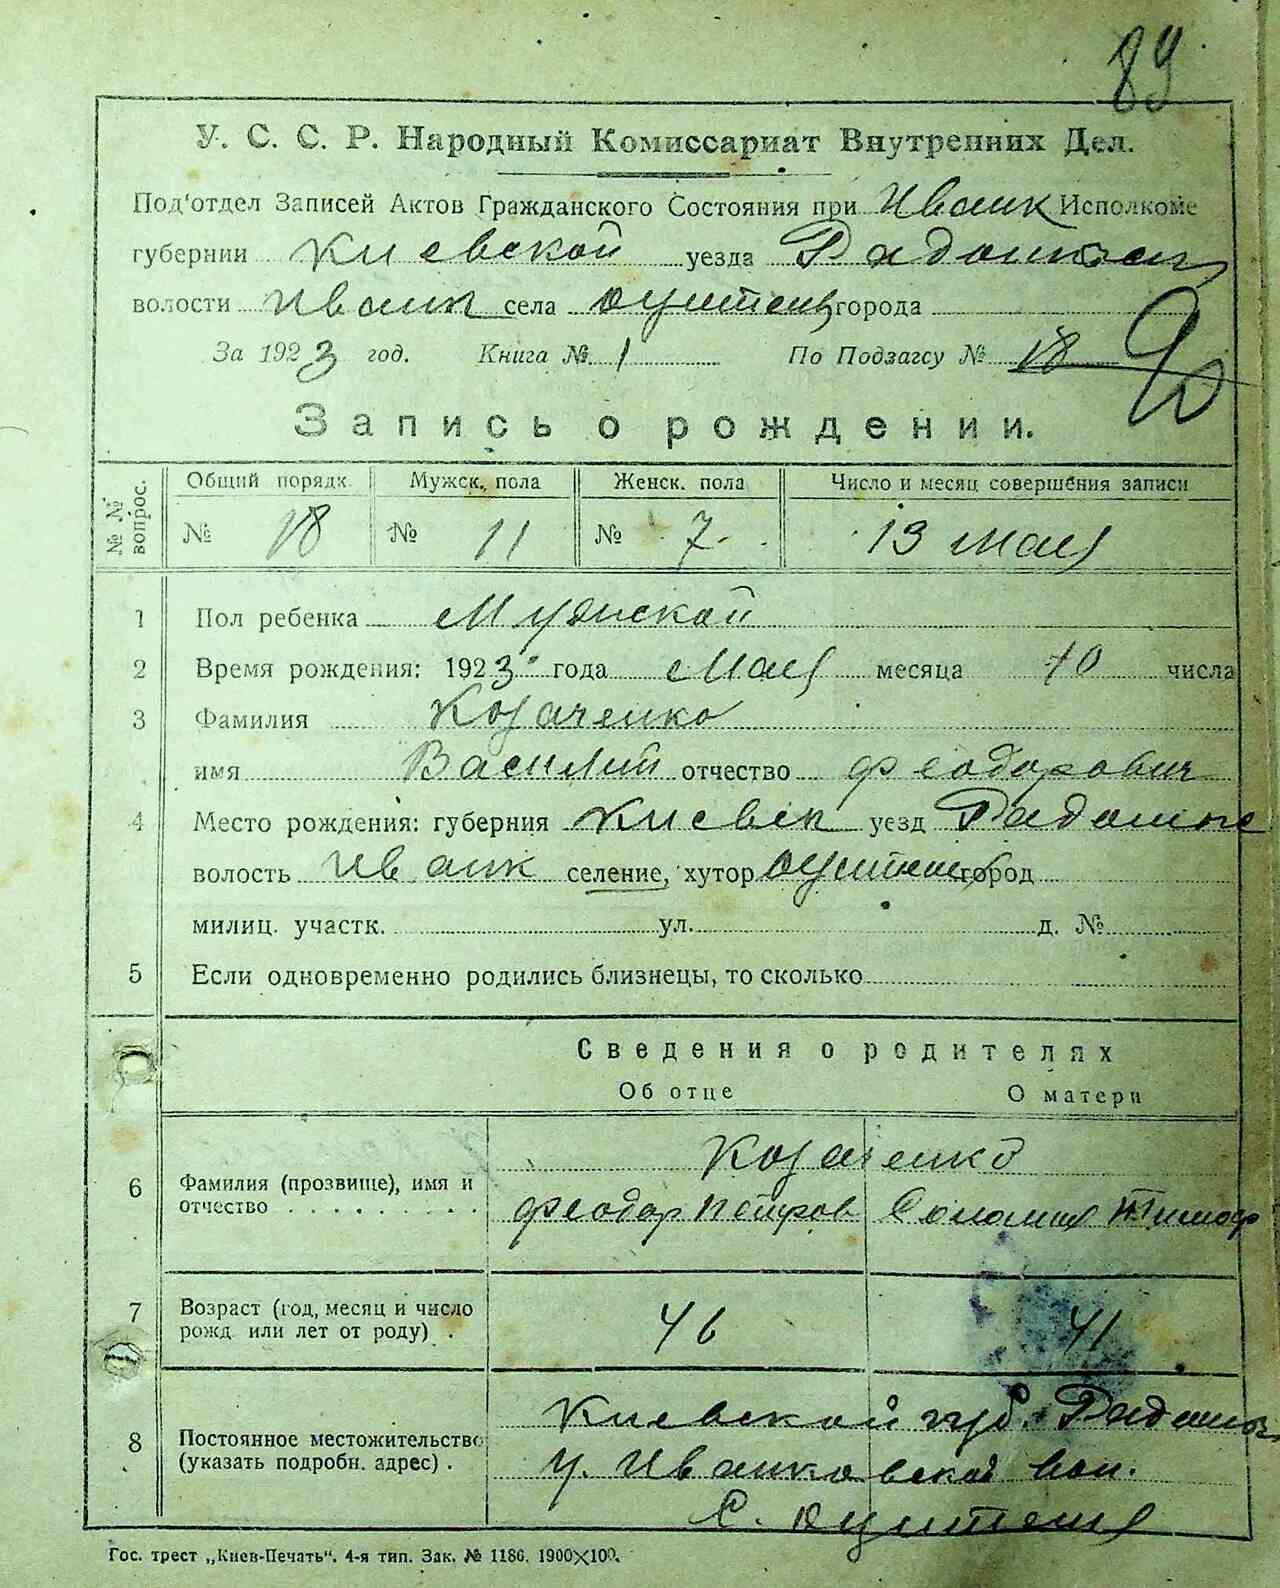 89
У. С. С. Р. Народный Комиссариат Внутренних Дел.
Под'отдел Записей Актов Гражданского Состояния при Иванк Исполкоме
губернии Киевской уезда Радомысл
волости Иванк села города
За 1923 год. Книга № 1 По Подзагсу № 18 90
Запись о рождении.
№ № вопрос. Общий порядк. Мужск. пола Женск. пола Число и месяц совершения записи
№ 18 № 11 № 7. 13 мая
1 Пол ребенка Мужской
2 Время рождения: 1923 года Мая месяца 10 числа
3 Фамилия Козаченко
имя Василий отчество Феодорович
4 Место рождения: губерния Киевск уезд Радомыс
волость Иванк селение, хутор город
милиц. участк. ул. д. №
5 Если одновременно родились близнецы, то сколько
Сведения о родителях
Об отце О матери
Козаченко
6 Фамилия (прозвище), имя и отчество Феодор Петров Соломия Тимоф
7 Возраст (год, месяц и число рожд. или лет от роду) . 46 41
Киевской губ. Радомыс
8 Постоянное местожительство (указать подробн. адрес) . у. Иванковской вол.
С.
Гос. трест „Киев-Печать". 4-я тип. Зак. № 1186. 1900×100.